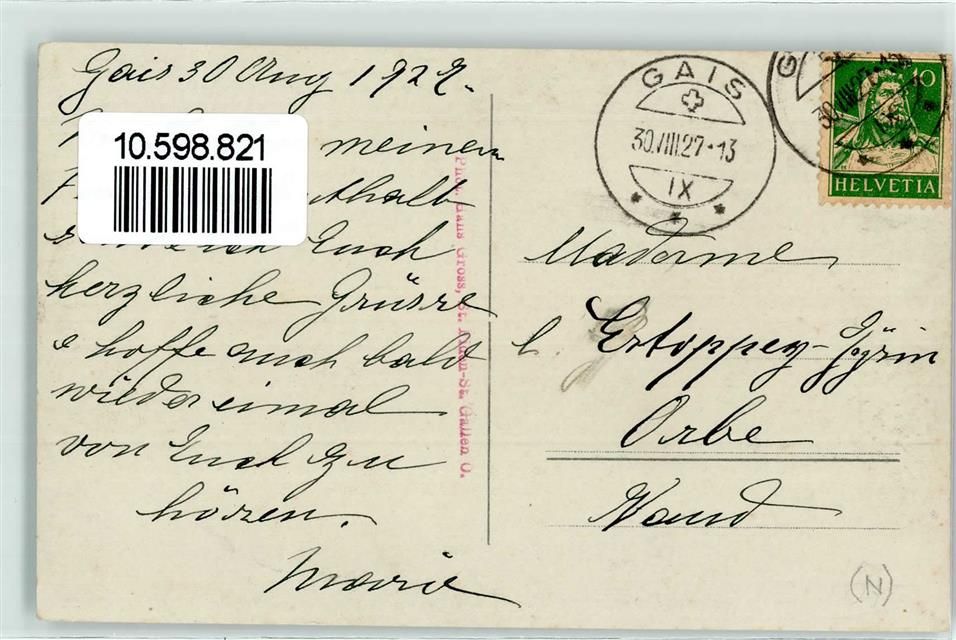 Gais 30 Aug 1927.
meinem
thalt
Euch
herzliche Grüsse
& hoffe auch bald
wieder einmal
von Euch zu
hören.
Marie
10.598.821
Phot. Hans Gross, St. Fiden-St. Gallen O.
GAIS
30.VIII.27-13
IX
30.VIII.27-13
10
HELVETIA
Madame
Orbe
Vaud
(N)